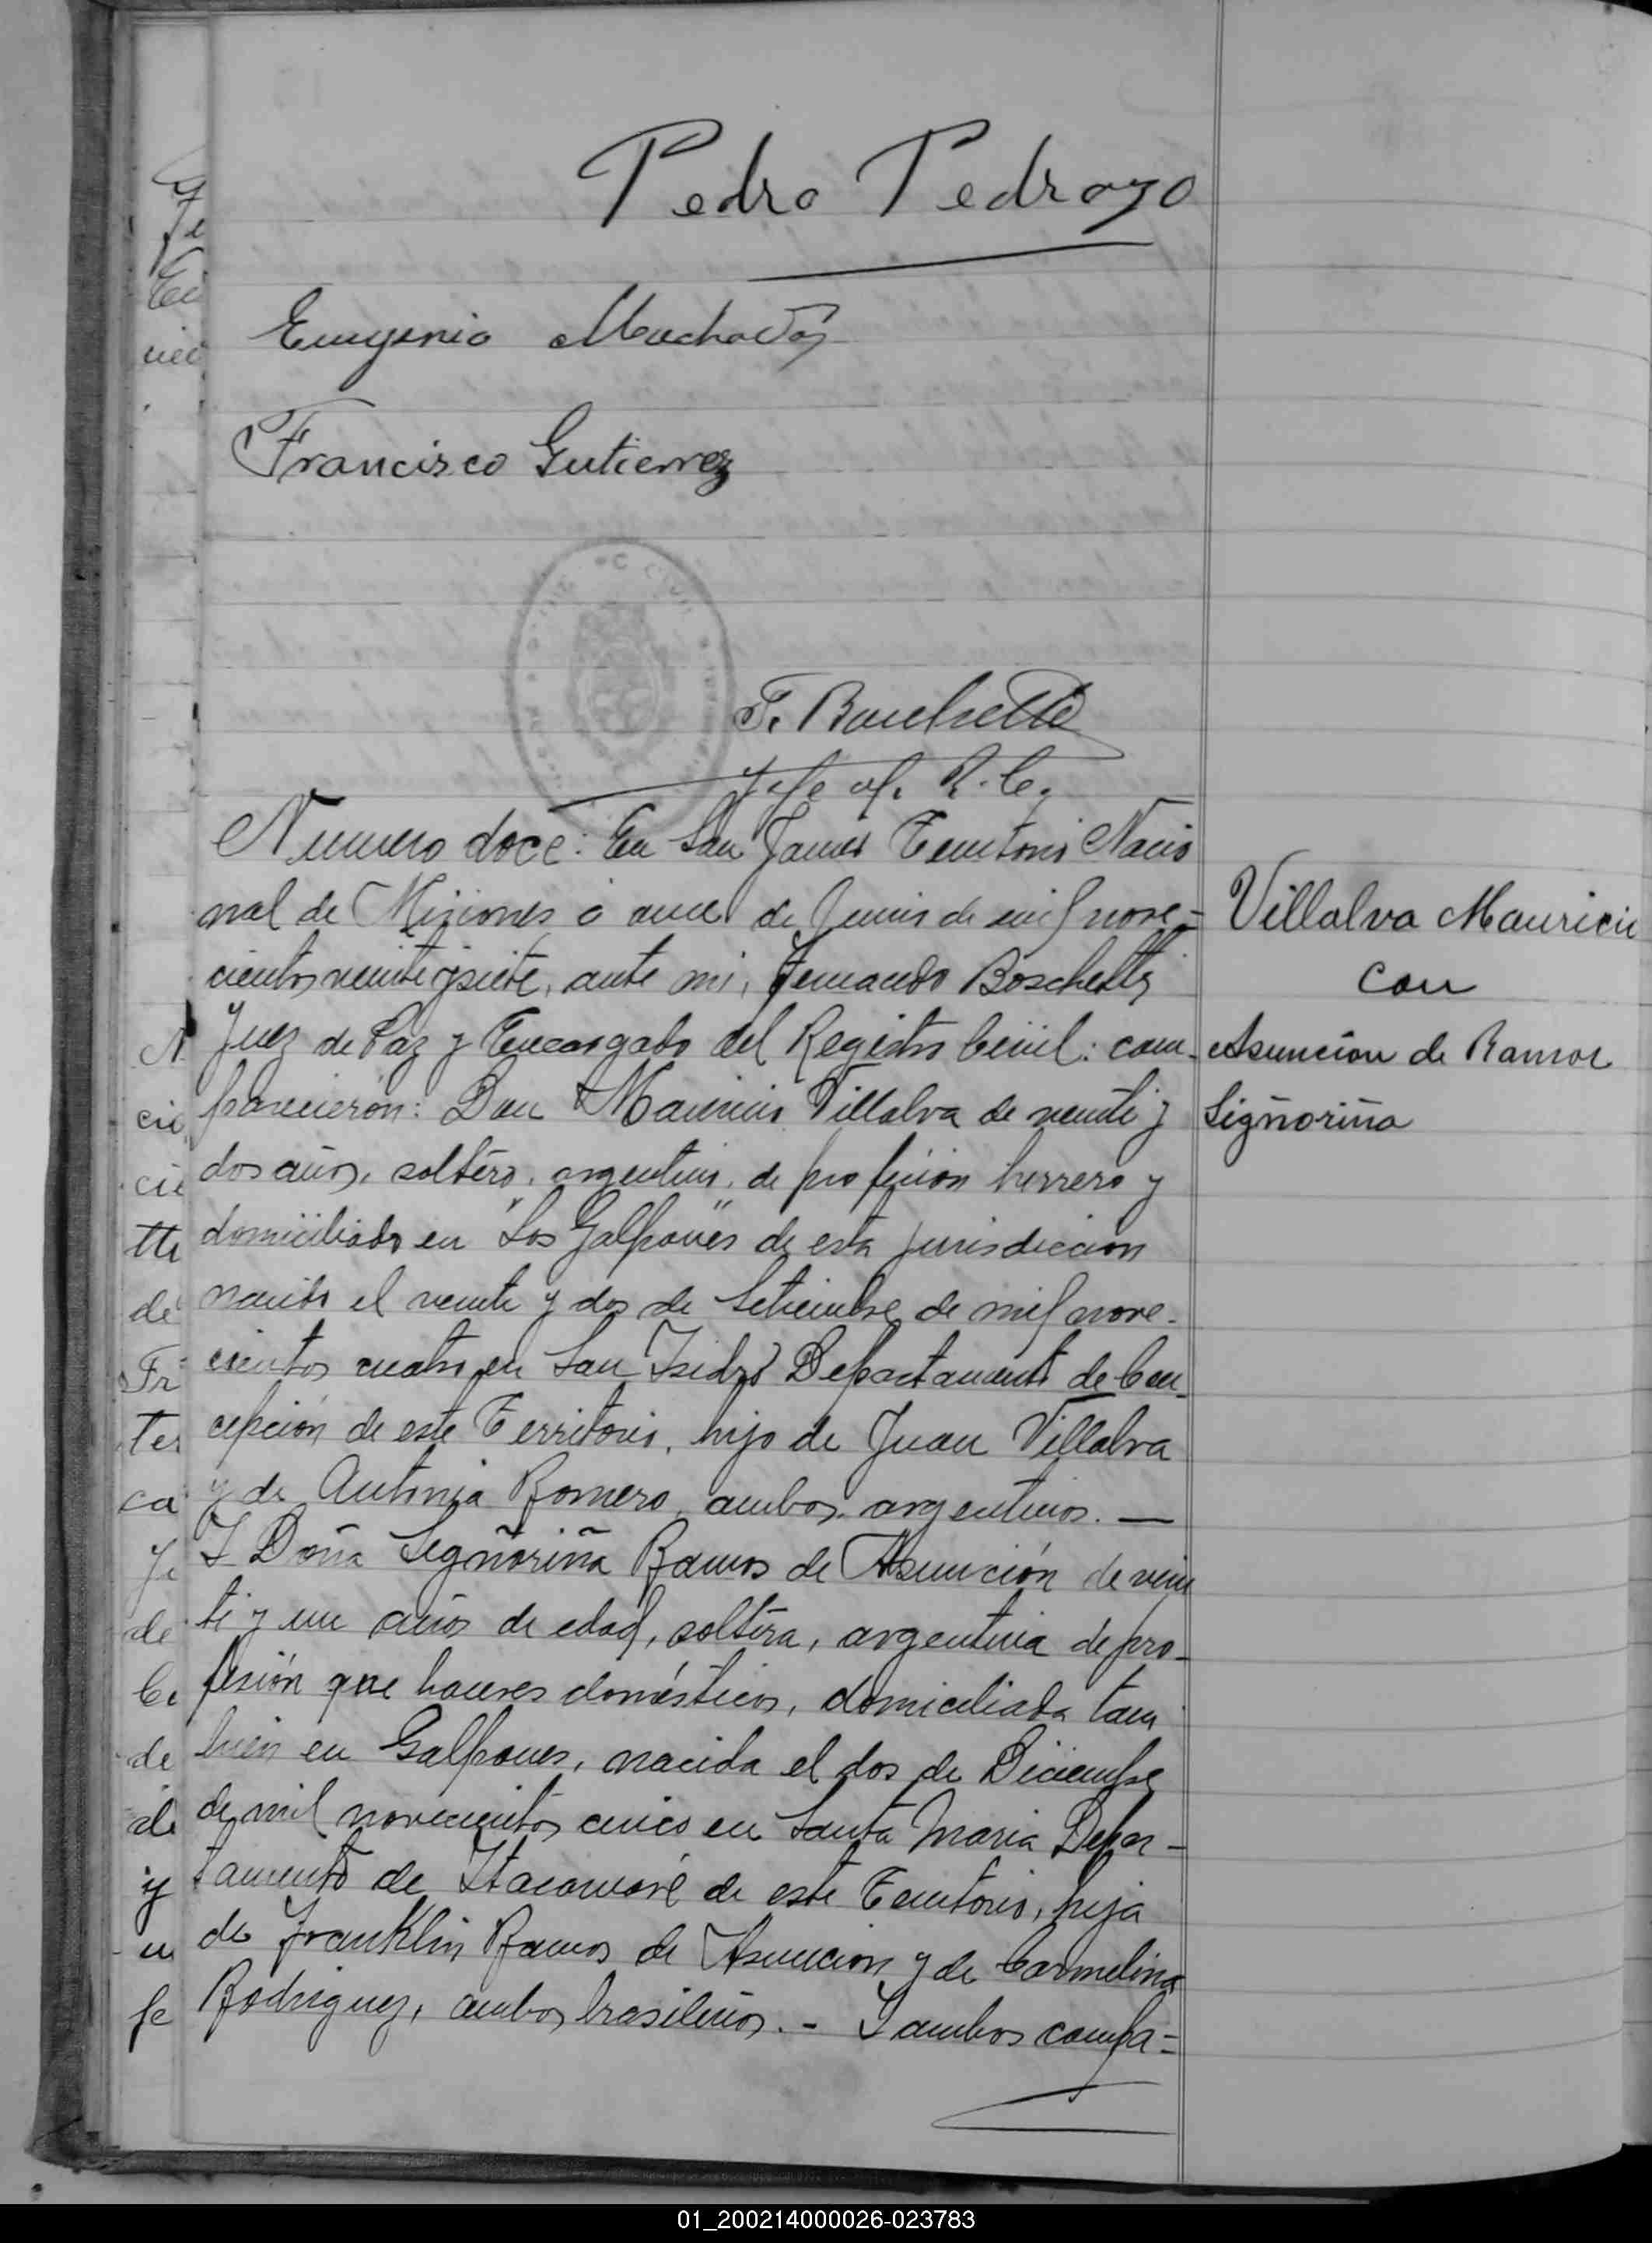 Pedro Pedrozo
Eugenio Machado
Francisco Gutierrez
F. Boschetti
Jefe of. R. C.
Numero doce: En San Javier Territorio Nacio
nal de Misiones á once de Junio de mil nove=
cientos veinte y siete, ante mi, Fernando Boschetti
Juez de Paz y Encargado del Registro Civil: com-
parecieron: Don Mauricio Villalva de veinte y
dos años, soltero, argentino, de profesion herrero y
domiciliado en "Los Galpones" de esta jurisdiccion
nacido el veinte y dos de Setiembre de mil nove-
cientos cuatro en San Isidro Departamento de Con-
cepción de este Territorio, hijo de Juan Villalva
y de Antonia Romero, ambos argentinos. —
Y Doña Signõriña Ramos de Asunción de vein
ti y un años de edad, soltera, argentina de pro-
fesión que haceres domésticos, domiciliada tam
bien en Galpones, nacida el dos de Diciembre
de mil novecientos cinco en Santa Maria Depar-
tamento de Itacaruaré de este Territorio, hija
de Franklin Ramos de Asuncion y de Carmelina
Rodriguez, ambos brasileños. - Y ambos compa=
Villalva Mauricio
con
Asuncion de Ramos
Signõriña
01_200214000026-023783